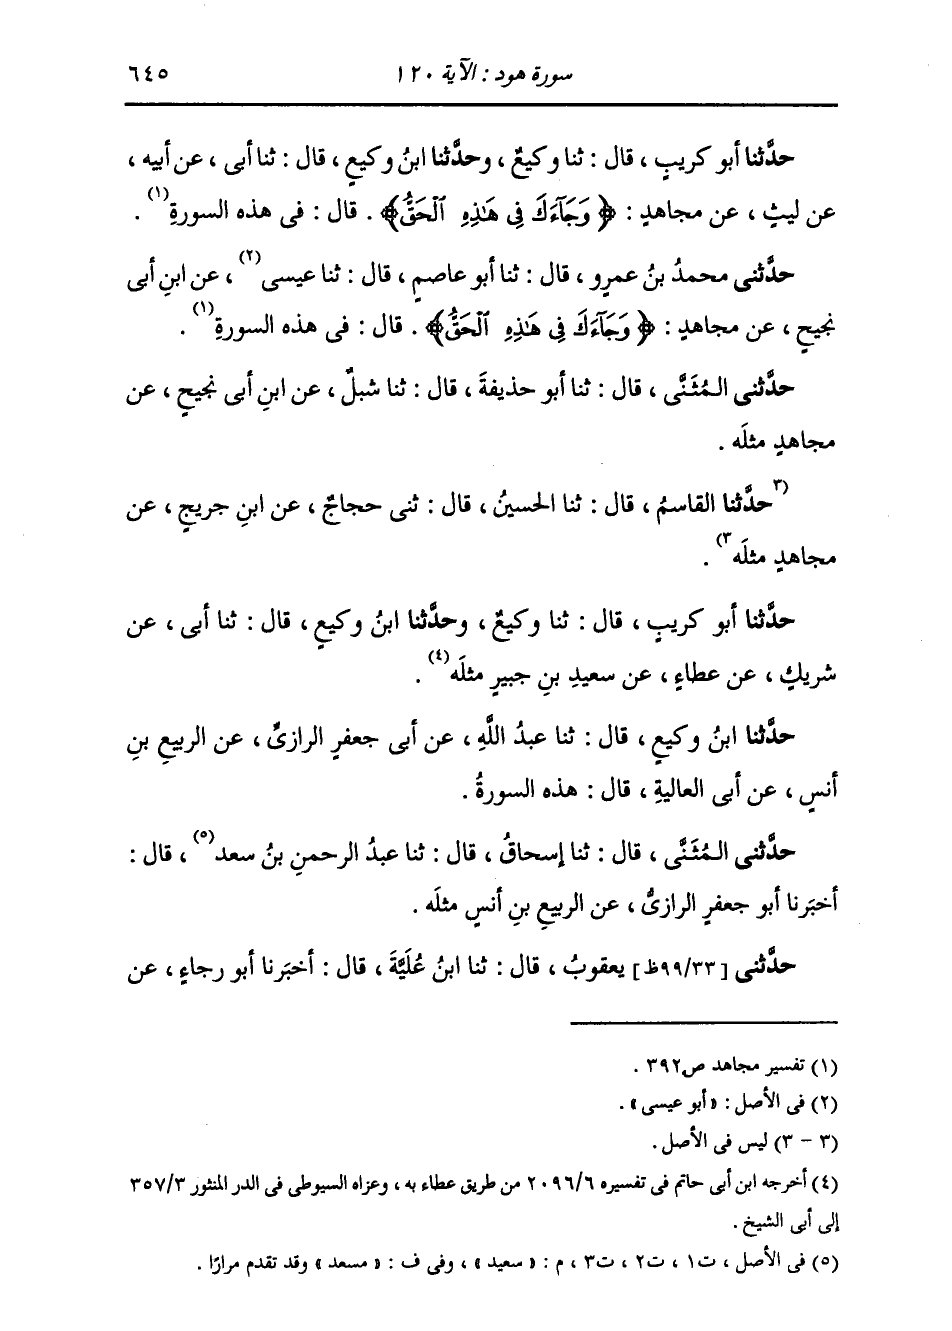 سورة هود : الآية ١٢٠ ٦٤٥
حدَّثنا أبو كريبٍ ، قال : ثنا وكيعٌ ، وحدَّثنا ابنُ وكيعٍ ، قال : ثنا أبى ، عن أبيه ،
عن ليثٍ ، عن مجاهدٍ : ﴿ وَجَآءَكَ فِى هَٰذِهِ ٱلْحَقُّ﴾ . قال : فى هذه السورةِ(١) .
حدَّثنى محمدُ بنُ عمرٍو ، قال : ثنا أبو عاصمٍ ، قال : ثنا عيسى(٢) ، عن ابنِ أبى
نجيحٍ ، عن مجاهدٍ : ﴿ وَجَآءَكَ فِى هَٰذِهِ ٱلْحَقُّ﴾ . قال : فى هذه السورةِ(١) .
حدَّثنى المُثَنَّى ، قال : ثنا أبو حذيفةَ ، قال : ثنا شبلٌ ، عن ابنِ أبى نجيحٍ ، عن
مجاهدٍ مثلَه .
(٣حدَّثنا القاسمُ ، قال : ثنا الحسينُ ، قال : ثنى حجاجٌ ، عن ابنِ جريجٍ ، عن
مجاهدٍ مثلَه٣) .
حدَّثنا أبو كريبٍ ، قال : ثنا وكيعٌ ، وحدَّثنا ابنُ وكيعٍ ، قال : ثنا أبى ، عن
شريكٍ ، عن عطاءٍ ، عن سعيدِ بنِ جبيرٍ مثلَه(٤) .
حدَّثنا ابنُ وكيعٍ ، قال : ثنا عبدُ اللَّهِ ، عن أبى جعفرٍ الرازىِّ ، عن الربيعِ بنِ
أنسٍ ، عن أبى العاليةِ ، قال : هذه السورةُ .
حدَّثنى المُثَنَّى ، قال : ثنا إسحاقُ ، قال : ثنا عبدُ الرحمنِ بنُ سعد(٥) ، قال :
أخبَرنا أبو جعفرٍ الرازىُّ ، عن الربيعِ بنِ أنسٍ مثلَه .
حدَّثنى [٩٩/٣٣ظ] يعقوبُ ، قال : ثنا ابنُ عُلَيَّةَ ، قال : أخبَرنا أبو رجاءٍ ، عن
(١) تفسير مجاهد ص٣٩٢ .
(٢) فى الأصل : «أبو عيسى» .
(٣ - ٣) ليس فى الأصل .
(٤) أخرجه ابن أبى حاتم فى تفسيره ٢٠٩٦/٦ من طريق عطاء به ، وعزاه السيوطى فى الدر المنثور ٣٥٧/٣
إلى أبى الشيخ .
(٥) فى الأصل ، ت١ ، ت٢ ، ت٣ ، م : «سعيد» ، وفى ف : «مسعد» وقد تقدم مرارًا .